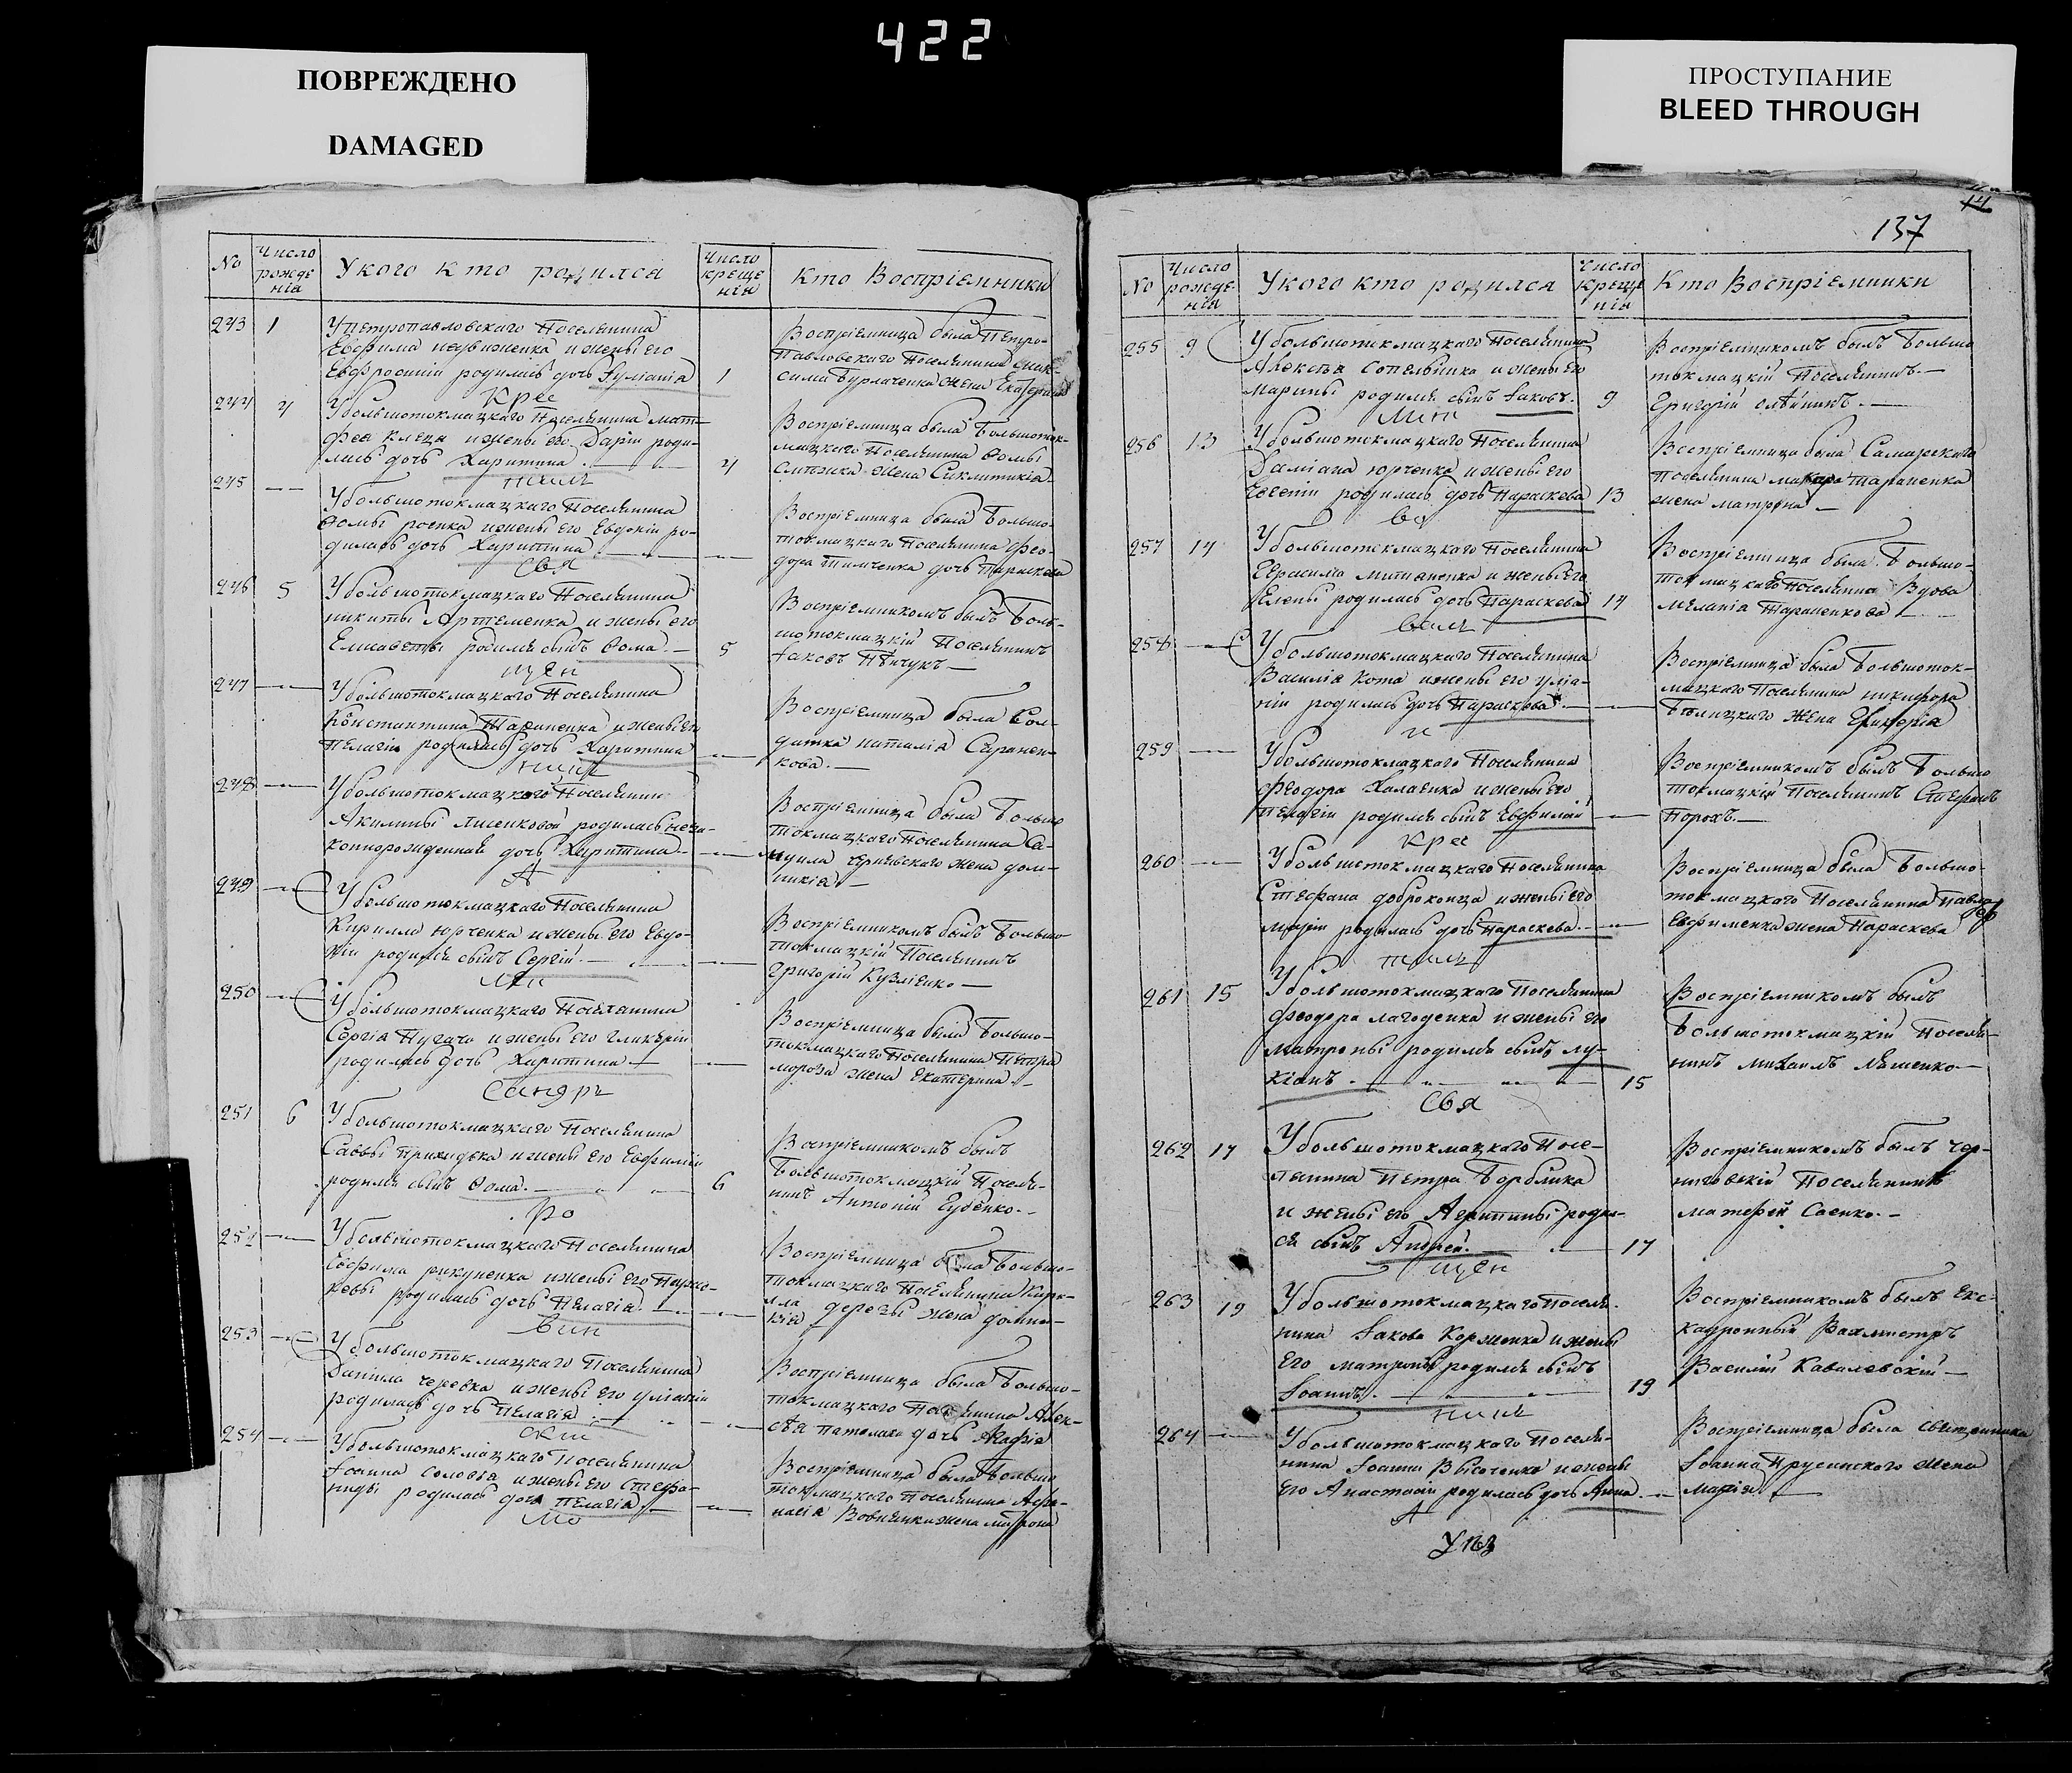 422
ПОВРЕЖДЕНО
DAMAGED
ПРОСТУПАНИЕ
BLEED THROUGH
№ Число рожденія У кого кто родился Число крещенія Кто Воспріемники
243 1 У петропавловскаго Поселянина
Евфима и жены его
Евфросиніи родилась дочь Іуліанія 1
Воспріемница была Петро-
павловскаго Поселянина Мак-
сима Бурлаченка жена Екатерина
Крес
244 4 У большотокмацкаго Поселянина Мат-
фея Клеца и жены его Даріи роди-
лась дочь Харитина. 4
Воспріемница была Большоток-
мацкаго Поселянина Ѳомы
жена Сиклитикія
245 — У большотокмацкаго Поселянина
Ѳомы роенка и жены его Евдокіи ро-
дилась дочь Харитина —
Воспріемница была Большо-
токмацкаго Поселянина Фео-
дора Тимченка дочь Параскева
Свя
246 5 У большотокмацкаго Поселянина
никиты Артеменка и жены его
Елисаветы родился сынъ Ѳома. — 5
Воспріемникомъ былъ Боль-
шотокмацкій Поселянинъ
Іаковъ Пѣнчукъ —
щен
247 — У большотокмацкаго Поселянина
Константина Тараненка и жены его
Пелагіи родилась дочь Харитина —
Воспріемница была Сол-
датка наталія
кова. —
ника
248 — У большотокмацкаго Поселянин
Акилины Лисенковой родилась неза-
коннорожденная дочь Харитина —
Воспріемница была Большо
токмацкаго Поселянина Са-
муила жена дом-
никія —
А
249 — У большотокмацкаго Поселянина
Кирилла Юрченка и жены его Евдо-
кіи родился сынъ Сергій. —
Воспріемникомъ былъ Большо
токмацкій Поселянинъ
Григорій Кузменко —
250 — У большотокмацкаго Поселянина
Сергія Пугача и жены его гликеріи
родилась дочь Харитина —
Воспріемница была Большо-
токмацкаго Поселянина Петра
мороза жена Екатерина. —
Сандръ
251 6 У большотокмацкаго Поселянина
Саввы Приходька и жены его Евфиміи
родился сынъ Ѳома. — 6
Воспріемникомъ былъ
Большотокмацкій Поселя-
нинъ Антоній Губенко. —
ро
252 — У большотокмацкаго Поселянина
Евфима рикуненка и жены его Парас-
кевы родилась дочь Пелагія. —
Воспріемница была Большо-
токмацкаго Поселянина Кири-
лла дерезы жена домни-
кія —
вин
253 — У большотокмацкаго Поселянина
Даніила черевка и жены его уліаніи
родилась дочь Пелагія. —
Воспріемница была Большо-
токмацкаго Поселянина Алек-
сѣя дочь Агафія
254 — У большотокмацкаго Поселянина
Іоанна Соловья и жены его Стефа-
ниды родилась дочь Пелагія. —
Воспріемница была Большо
токмацкаго Поселянина Афа-
насія Вовнянка жена матрона
Мо
14
137
№ Число рожденія У кого кто родился Число крещенія Кто Воспріемники
255 9 У большотокмацкаго Поселянина
Алексѣя и жены его
Марины родился сынъ Іаковъ. 9
Воспріемникомъ былъ Большо
токмацкій Поселянинъ —
Григорій олѣйникъ. —
256 13 У большотокмацкаго Поселянина
Даміана юрченка и жены его
Евгеніи родилась дочь Параскева 13
Воспріемница была Самарскаго
Поселянина макара Тараненка
жена матрона —
257 14 У большотокмацкаго Поселянина
Герасима и жены его
Елены родилась дочь Параскева 14
Воспріемница была Большо-
токмацкаго Поселянина Вдова
Меланія Тараненкова —
258 — У большотокмацкаго Поселянина
Василія Кота и жены его уліа-
ніи родилась дочь Параскева —
Воспріемница была Большоток-
мацкаго Поселянина никифора
жена
и
259 — У большотокмацкаго Поселянина
Феодора и жены его
Пелагіи родился сынъ Евфимій —
Воспріемникомъ былъ Большо
токмацкій Поселянинъ Стефанъ
Порохъ. —
Крес
260 — У большотокмацкаго Поселянина
Стефана доброконца и жены его
маріи родилась дочь Параскева. —
Воспріемница была Большо-
токмацкаго Поселянина Павла
Евфименка жена Параскева
261 15 У большотокмацкаго Поселянина
Феодора лагоденка и жены его
матроны родился сынъ лу-
кіанъ. — 15
Воспріемникомъ былъ
Большотокмацкій Поселя-
нинъ михаилъ Ляшенко —
Свя
262 17 У большотокмацкаго Посе-
лянина Петра
и жены его Агрипины родил-
ся сынъ Андрей. — 17
Воспріемникомъ былъ чер-
ниговскій Поселянинъ
матфей Саенко. —
щен
263 19 У большотокмацкаго Поселя-
нина Іакова Корженка и жены
его матроны родился сынъ
Іоаннъ. — 19
Воспріемникомъ былъ Екс-
кадронный Вахмистръ
Василій Кавалевскій —
ника
264 — У большотокмацкаго Поселя-
нина Іоанна Височенка и жены
его Анастасіи родилась дочь Анна. —
Воспріемница была священника
Іоанна Прусинскаго жена
марія —
А